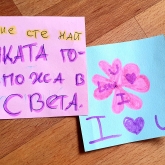 ИЕ СТЕ НАЙ
КАТА ГО-
МОЖА В
СВЕТА.
I ♥ U